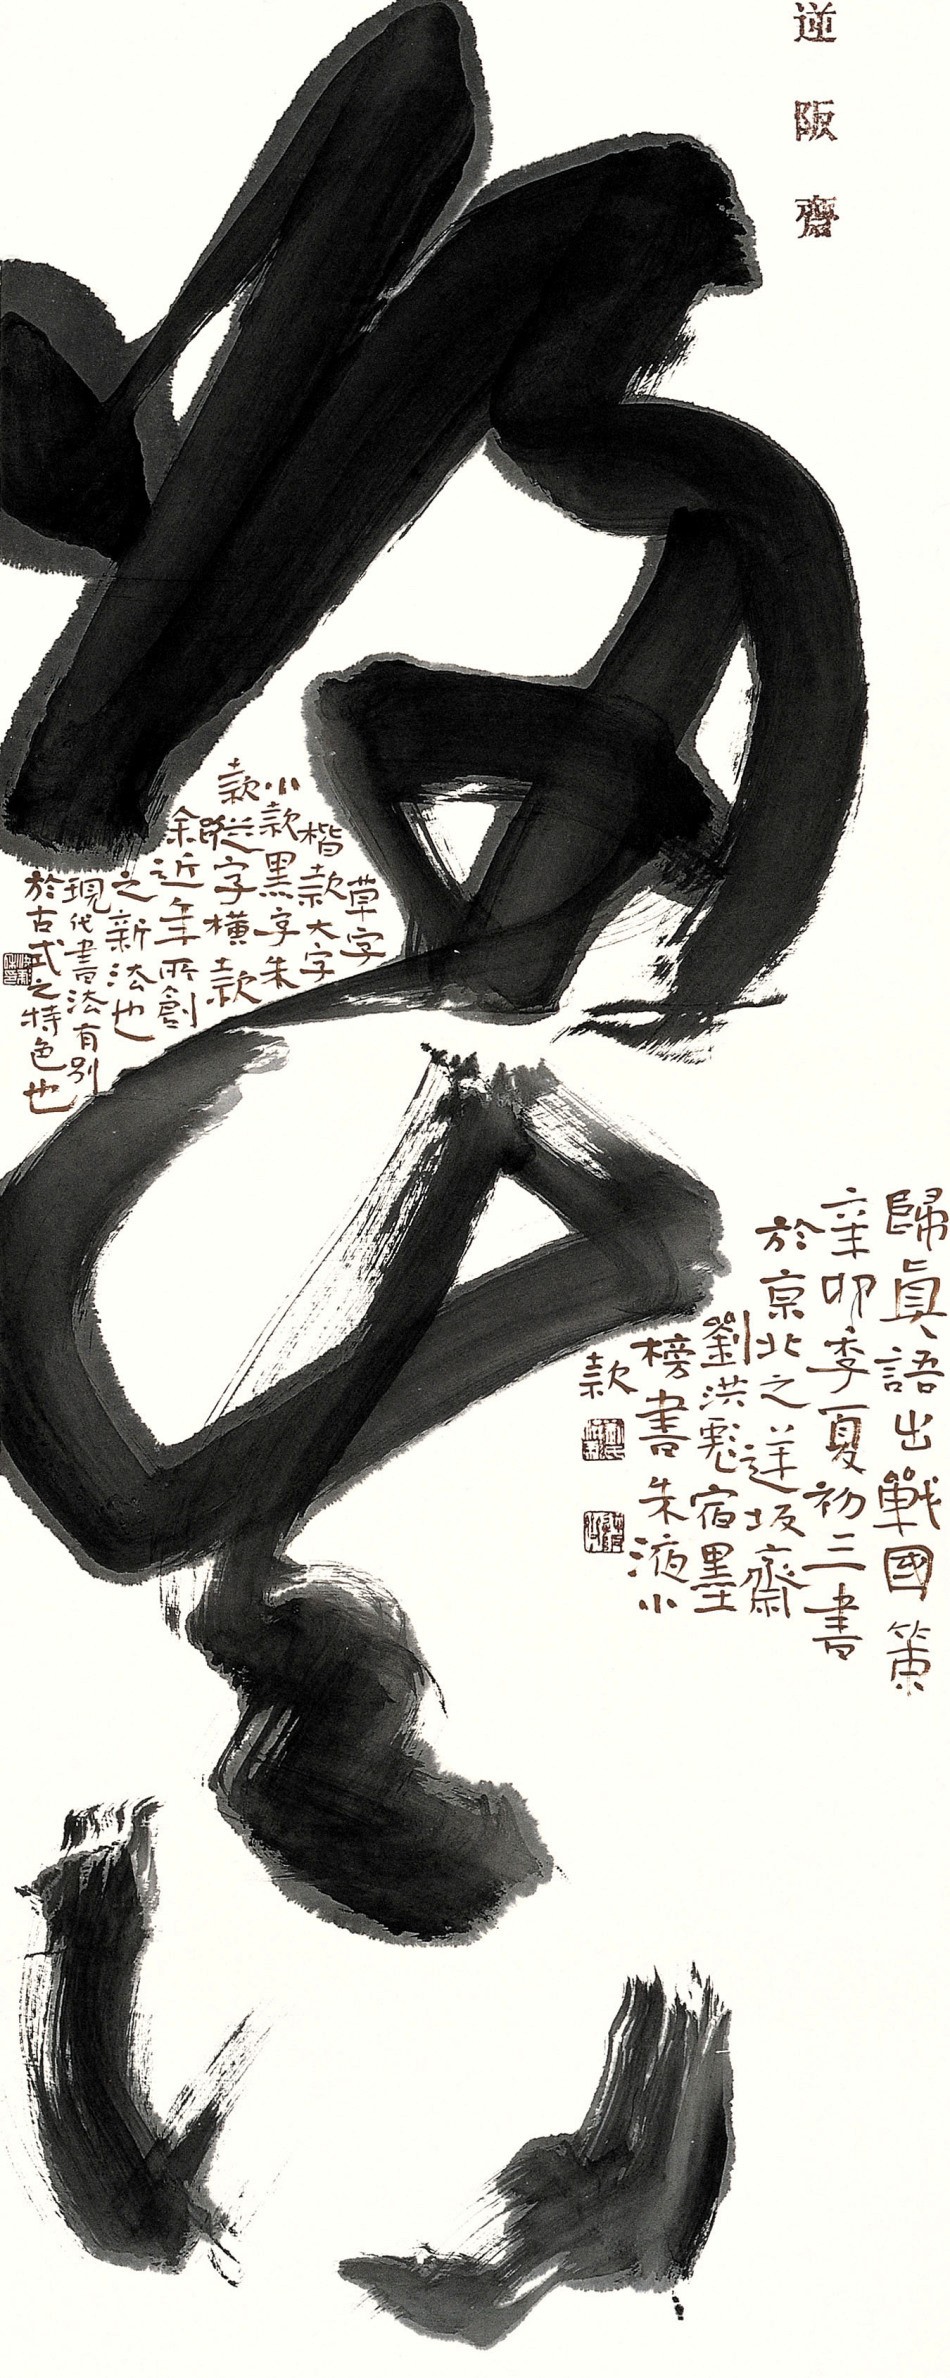 逆阪齋
歸真
歸真語出戰國策
辛卯季夏初三書
於京北之逆坂齋
劉洪彪宿墨
榜書朱液小
款
草字
楷款大字
小款黑字朱
款縱字橫款
余近年所創
之新法也
現代書法有別
於古式之特色也